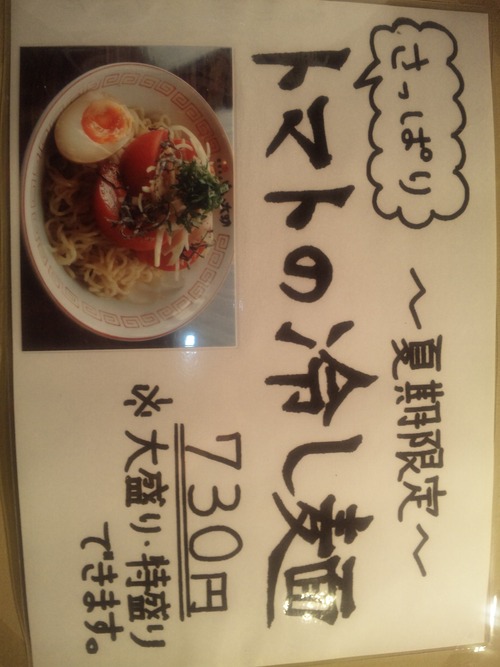 さっぱり
〜夏期限定〜
トマトの冷し麺
730円
※大盛り・特盛り
できます。